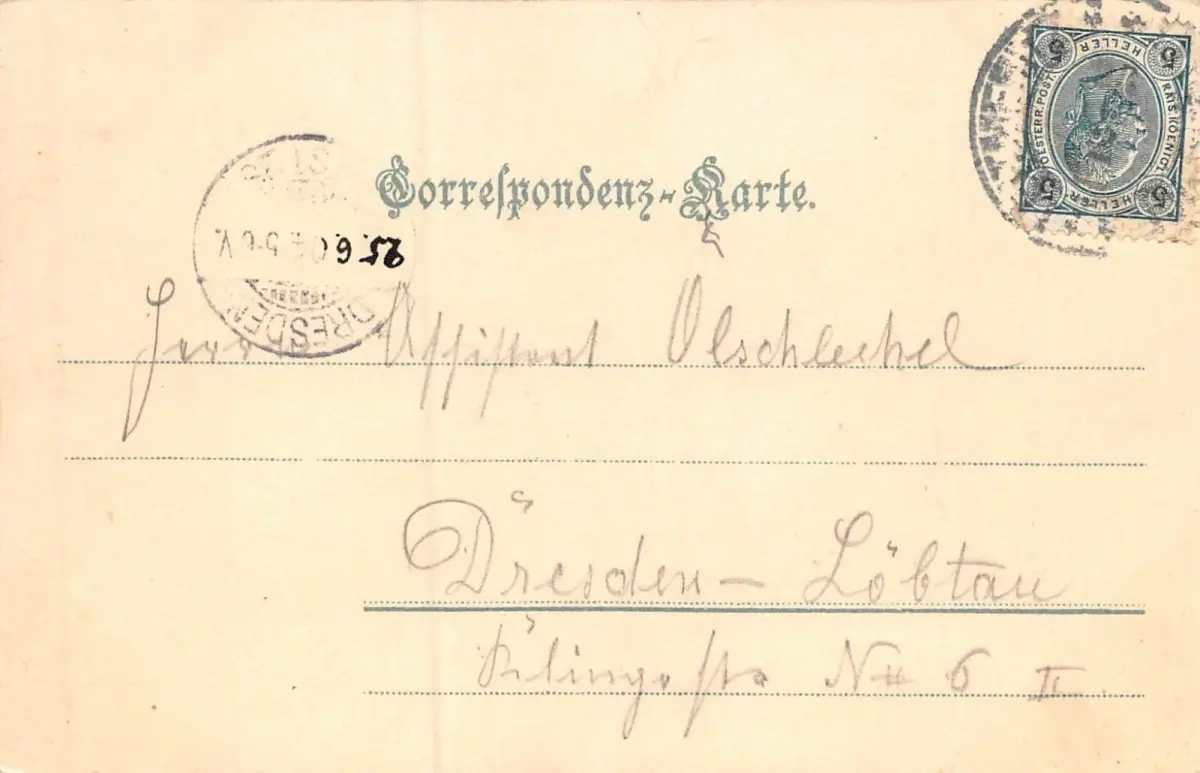 Correspondenz-Karte.
5 HELLER 5
KAIS. KOENIGL.
OESTERR. POST.
5 HELLER 5
DRESDEN
25.6.0
V.
Herrn Assistent Ölschlechel
Dresden – Löbtau
No 6 II